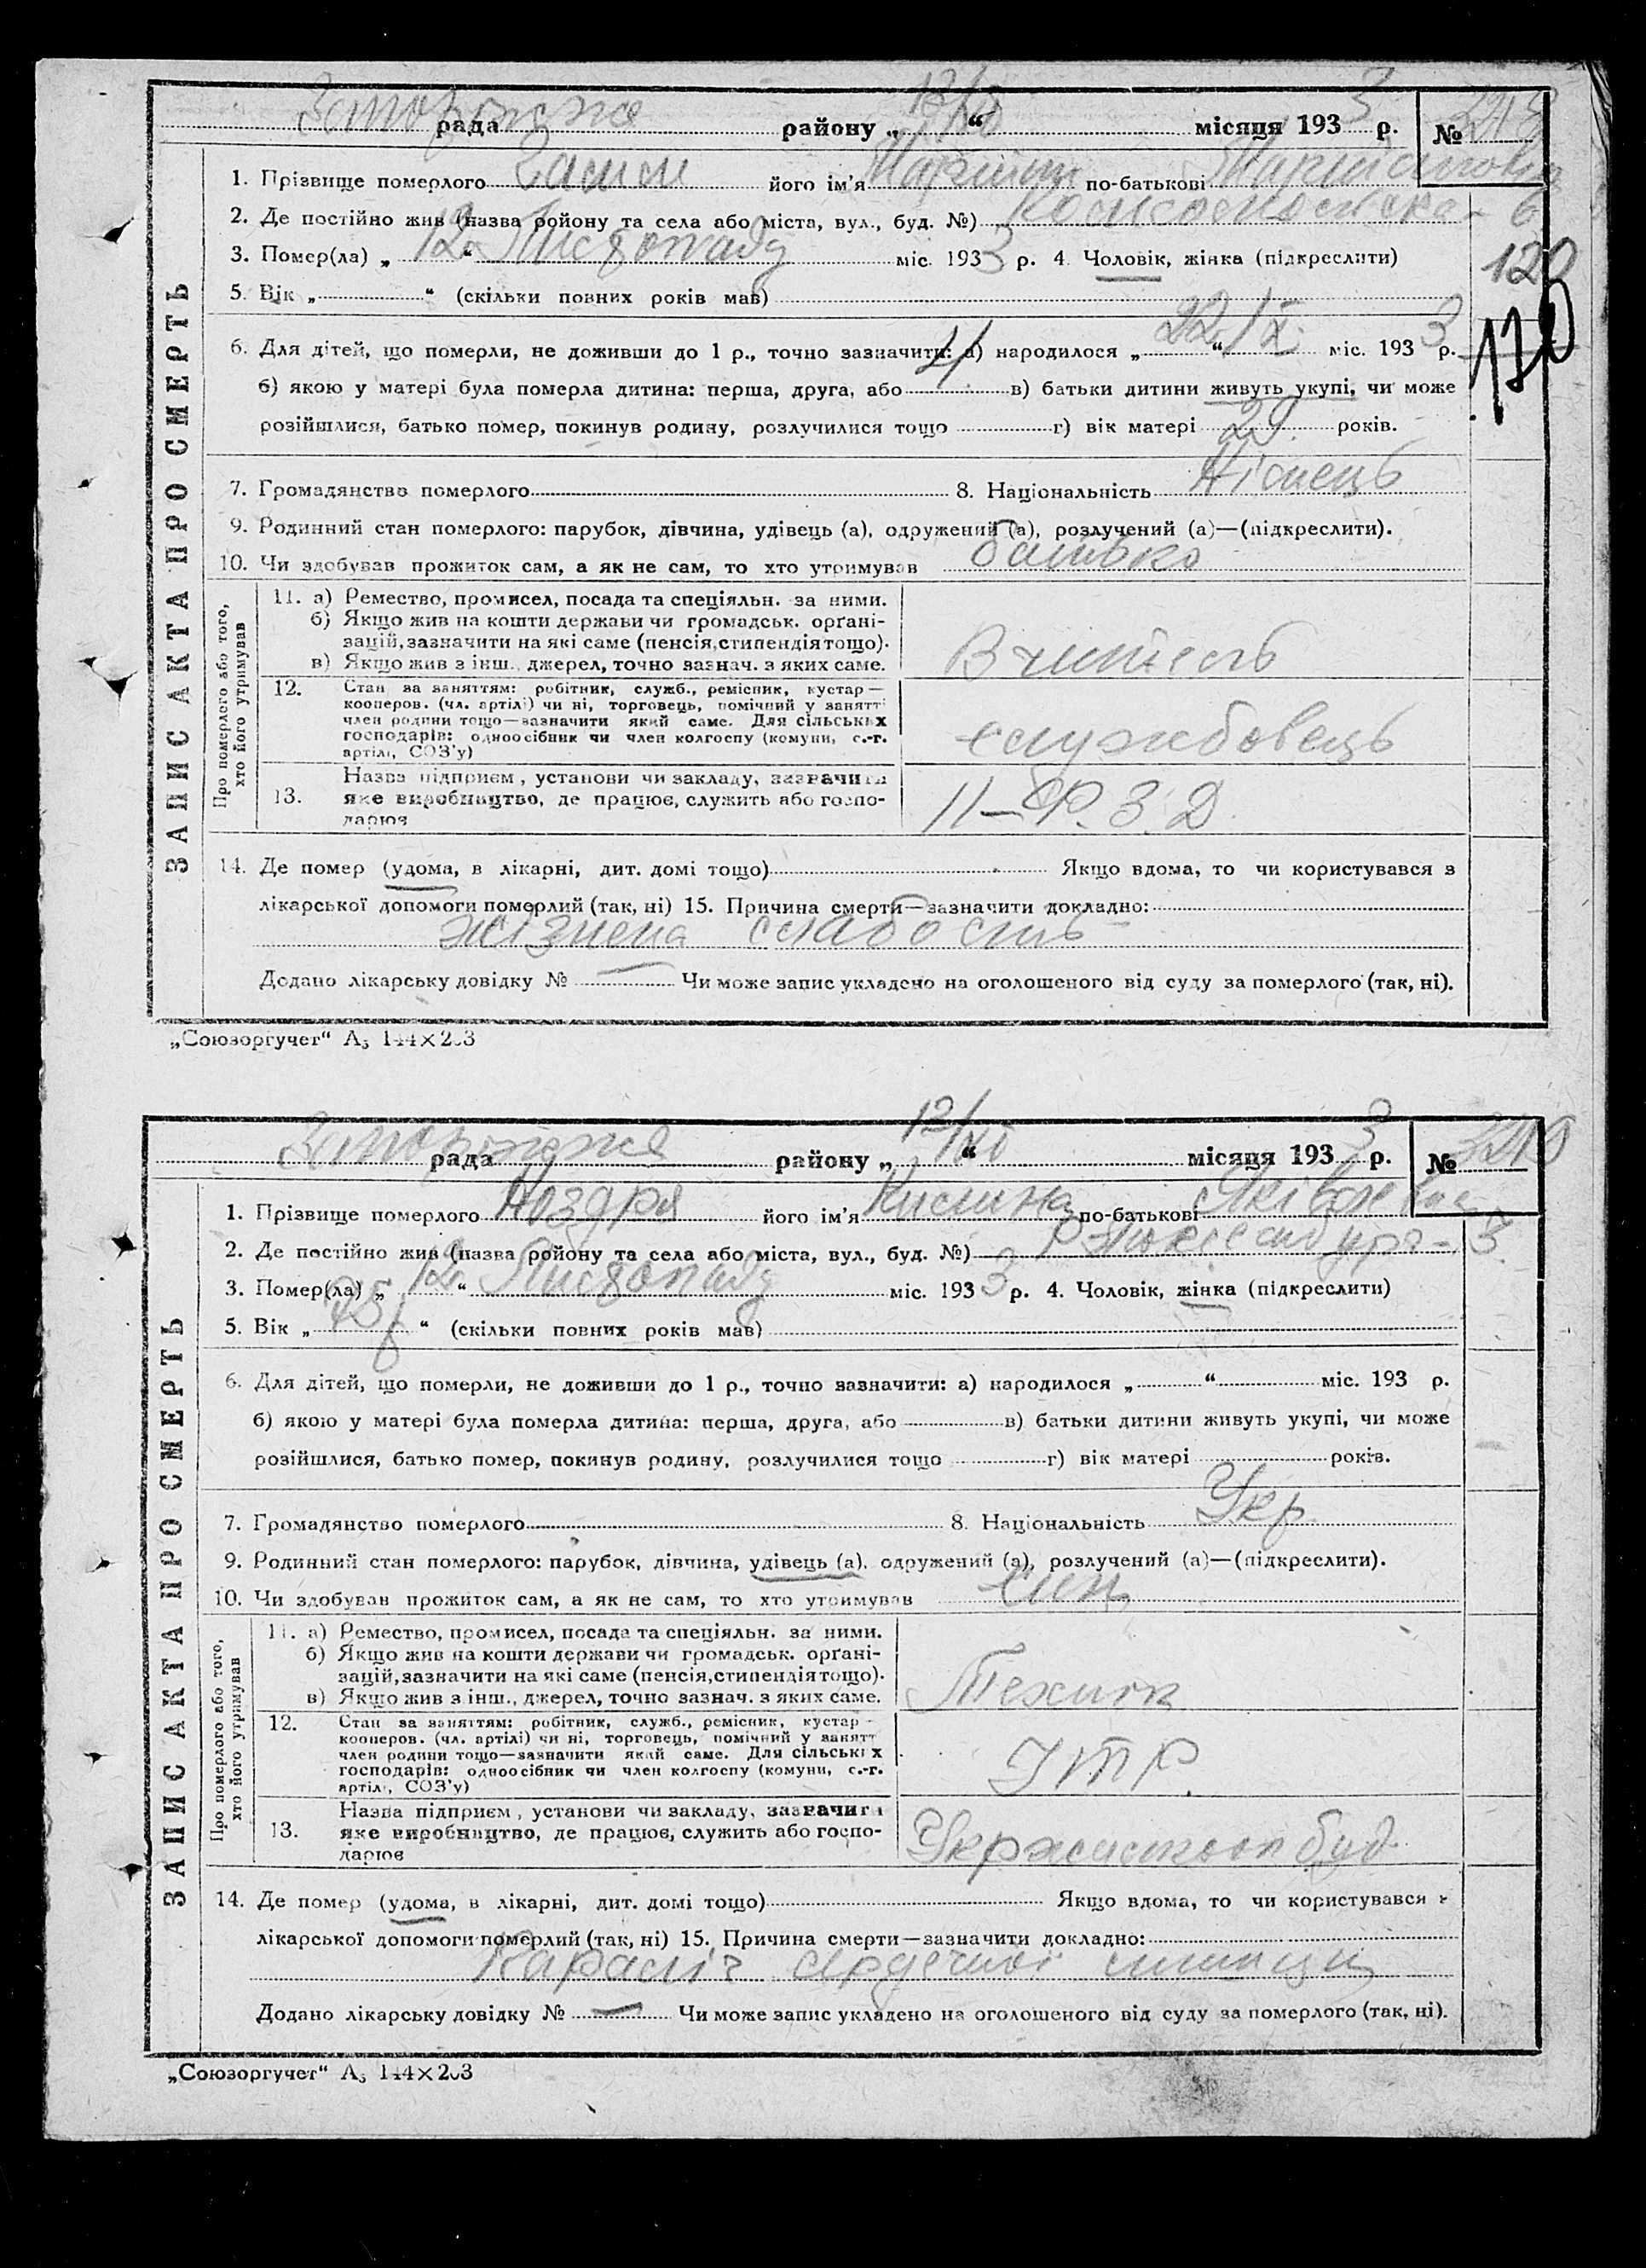 Запоріжжя рада района „ 13/XI “ місяця 1933 р. №
1. Прізвище померлого його ім'я Мартин по-батькові Мартинович
2. Де постійно жив (назва ройону та села або міста, вул., буд. №) Комсомольська - 6
3. Помер(ла) „ 12 “ Листопаду міс. 1933 р. 4. Чоловік, жінка (підкреслити)
120
5. Вік „ “ (скільки повних років мав)
120
6. Для дітей, що померли, не доживши до 1 р., точно зазначити: а) народилося „ 22 “ IX міс. 1933 р.
б) якою у матері була померла дитина: перша, друга, або 4 в) батьки дитини живуть укупі, чи може
розійшлися, батько помер, покинув родину, розлучилися тощо г) вік матері 29 років.
7. Громадянство померлого 8. Національність Німець
9. Родинний стан померлого: парубок, дівчина, удівець (а), одружений (а), розлучений (а)—(підкреслити).
10. Чи здобував прожиток сам, а як не сам, то хто утримував батько
ЗАПИС АКТА ПРО СМЕРТЬ
Про померлого або того,
хто його утримував
11. а) Ремество, промисел, посада та спеціяльн. за ними.
б) Якщо жив на кошти держави чи громадськ. орґані-
зацій, зазначити на які саме (пенсія, стипендія тощо).
в) Якщо жив з інш., джерел, точно зазнач. з яких саме.
Вчитель
12. Стан за заняттям: робітник, служб., ремісник, кустар—
кооперов. (чл. артілі) чи ні, торговець, помічний у занятті
член родини тощо—зазначити який саме. Для сільських
господарів: одноосібник чи член колгоспу (комуни, с.-г.
артілі, СОЗ'у)
службовець
13. Назва підприєм, установи чи закладу, зазначити
яке виробництво, де працює, служить або госпо-
дарює
11—Ф.З.Д.
14. Де помер (удома, в лікарні, дит. домі тощо) Якщо вдома, то чи користувався з
лікарської допомоги померлий (так, ні) 15. Причина смерти—зазначити докладно:
жізнена слабость
Додано лікарську довідку № — Чи може запис укладено на оголошеного від суду за померлого (так, ні).
„Союзоргучет“ А5 144×203
Запоріжжя рада району „ 13/XI “ місяця 1933 р. №
1. Прізвище померлого Ноздря його ім'я по-батькові Яківлевна
2. Де постійно жив (назва ройону та села або міста, вул., буд. №) Р. Люксембург - 3
3. Помер(ла) „ 12 “ Листопаду міс. 1933 р. 4. Чоловік, жінка (підкреслити)
5. Вік „ “ (скільки повних років мав)
6. Для дітей, що померли, не доживши до 1 р., точно зазначити: а) народилося „ “ міс. 193 р.
б) якою у матері була померла дитина: перша, друга, або в) батьки дитини живуть укупі, чи може
розійшлися, батько помер, покинув родину, розлучилися тощо г) вік матері років.
7. Громадянство померлого 8. Національність Укр
9. Родинний стан померлого: парубок, дівчина, удівець (а), одружений (а), розлучений (а)—(підкреслити).
10. Чи здобував прожиток сам, а як не сам, то хто утримував син
ЗАПИС АКТА ПРО СМЕРТЬ
Про померлого або того,
хто його утримував
11. а) Ремество, промисел, посада та спеціяльн. за ними.
б) Якщо жив на кошти держави чи громадськ. орґані-
зацій, зазначити на які саме (пенсія, стипендія тощо).
в) Якщо жив з інш., джерел, точно зазнач. з яких саме.
Технік
12. Стан за заняттям: робітник, служб., ремісник, кустар—
кооперов. (чл. артілі) чи ні, торговець, помічний у занятт
член родини тощо—зазначити який саме. Для сільських
господарів: одноосібник чи член колгоспу (комуни, с.-г.
артілі, СОЗ'у)
ІТР.
13. Назва підприєм, установи чи закладу, зазначити
яке виробництво, де працює, служить або госпо-
дарює
14. Де помер (удома, в лікарні, дит. домі тощо) Якщо вдома, то чи користувався з
лікарської допомоги померлий (так, ні) 15. Причина смерти—зазначити докладно:
Параліч сердечної мишци
Додано лікарську довідку № — Чи може запис укладено на оголошеного від суду за померлого (так, ні).
„Союзоргучет“ А5 144×203